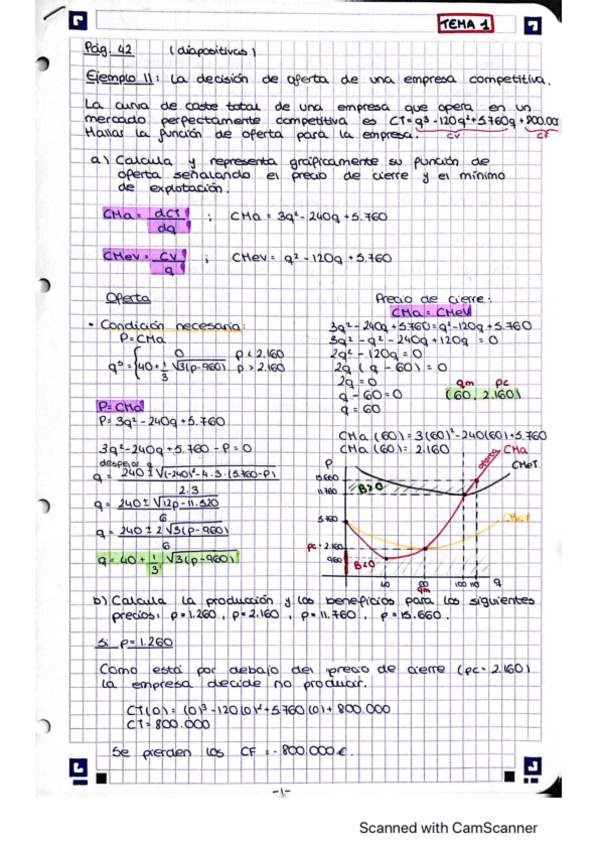 TEMA 1
Pág. 42 (diapositivas)
Ejemplo 11: La decisión de oferta de una empresa competitiva.
La curva de coste total de una empresa que opera en un
mercado perfectamente competitivo es CT=q³-120q²+5.760q+800.000
Hallas la función de oferta para la empresa.
CV CF
a) Calcula y representa gráficamente su función de
oferta señalando el precio de cierre y el mínimo
de explotación.
CMa = dCT/dq ; CMa = 3q²-240q+5.760
CMeV = CV/q ; CMeV = q²-120q+5.760
Oferta
• Condición necesaria:
P=CMa
q⁰ = { 0 p<2.160
40+1/3 √3(p-960) p>2.160
P=CMa
P= 3q²-240q+5.760
3q²-240q+5.760-P=0
despejar q
q= 240±√(-240)²-4·3·(5.760-P) / 2·3
q= 240±√12p-11.520 / 6
q= 240±2√3(p-960) / 6
q= 40+1/3 √3(p-960)
Precio de cierre:
CMa=CMeV
3q²-240q+5.760=q²-120q+5.760
3q²-q²-240q+120q=0
2q²-120q=0
2q(q-60)=0
2q=0
q-60=0
q=60
qm pc
(60, 2.160)
CMa(60)=3(60)²-240(60)+5.760
CMa(60)= 2.160
P
oferta
CMa
CMeT
CMeV
15.660
11.760
5.760
pc=2.160
960
B>0
B<0
40 60 100 110 q
qm
b) Calcula la producción y los beneficios para los siguientes
precios: p=1.260, p=2.160, p=11.760, p=15.660.
Si p=1.260
Como está por debajo del precio de cierre (pc=2.160)
la empresa decide no producir.
CT(0)=(0)³-120(0)²+5.760(0)+800.000
CT=800.000
Se pierden los CF=-800.000€.
-1-
Scanned with CamScanner